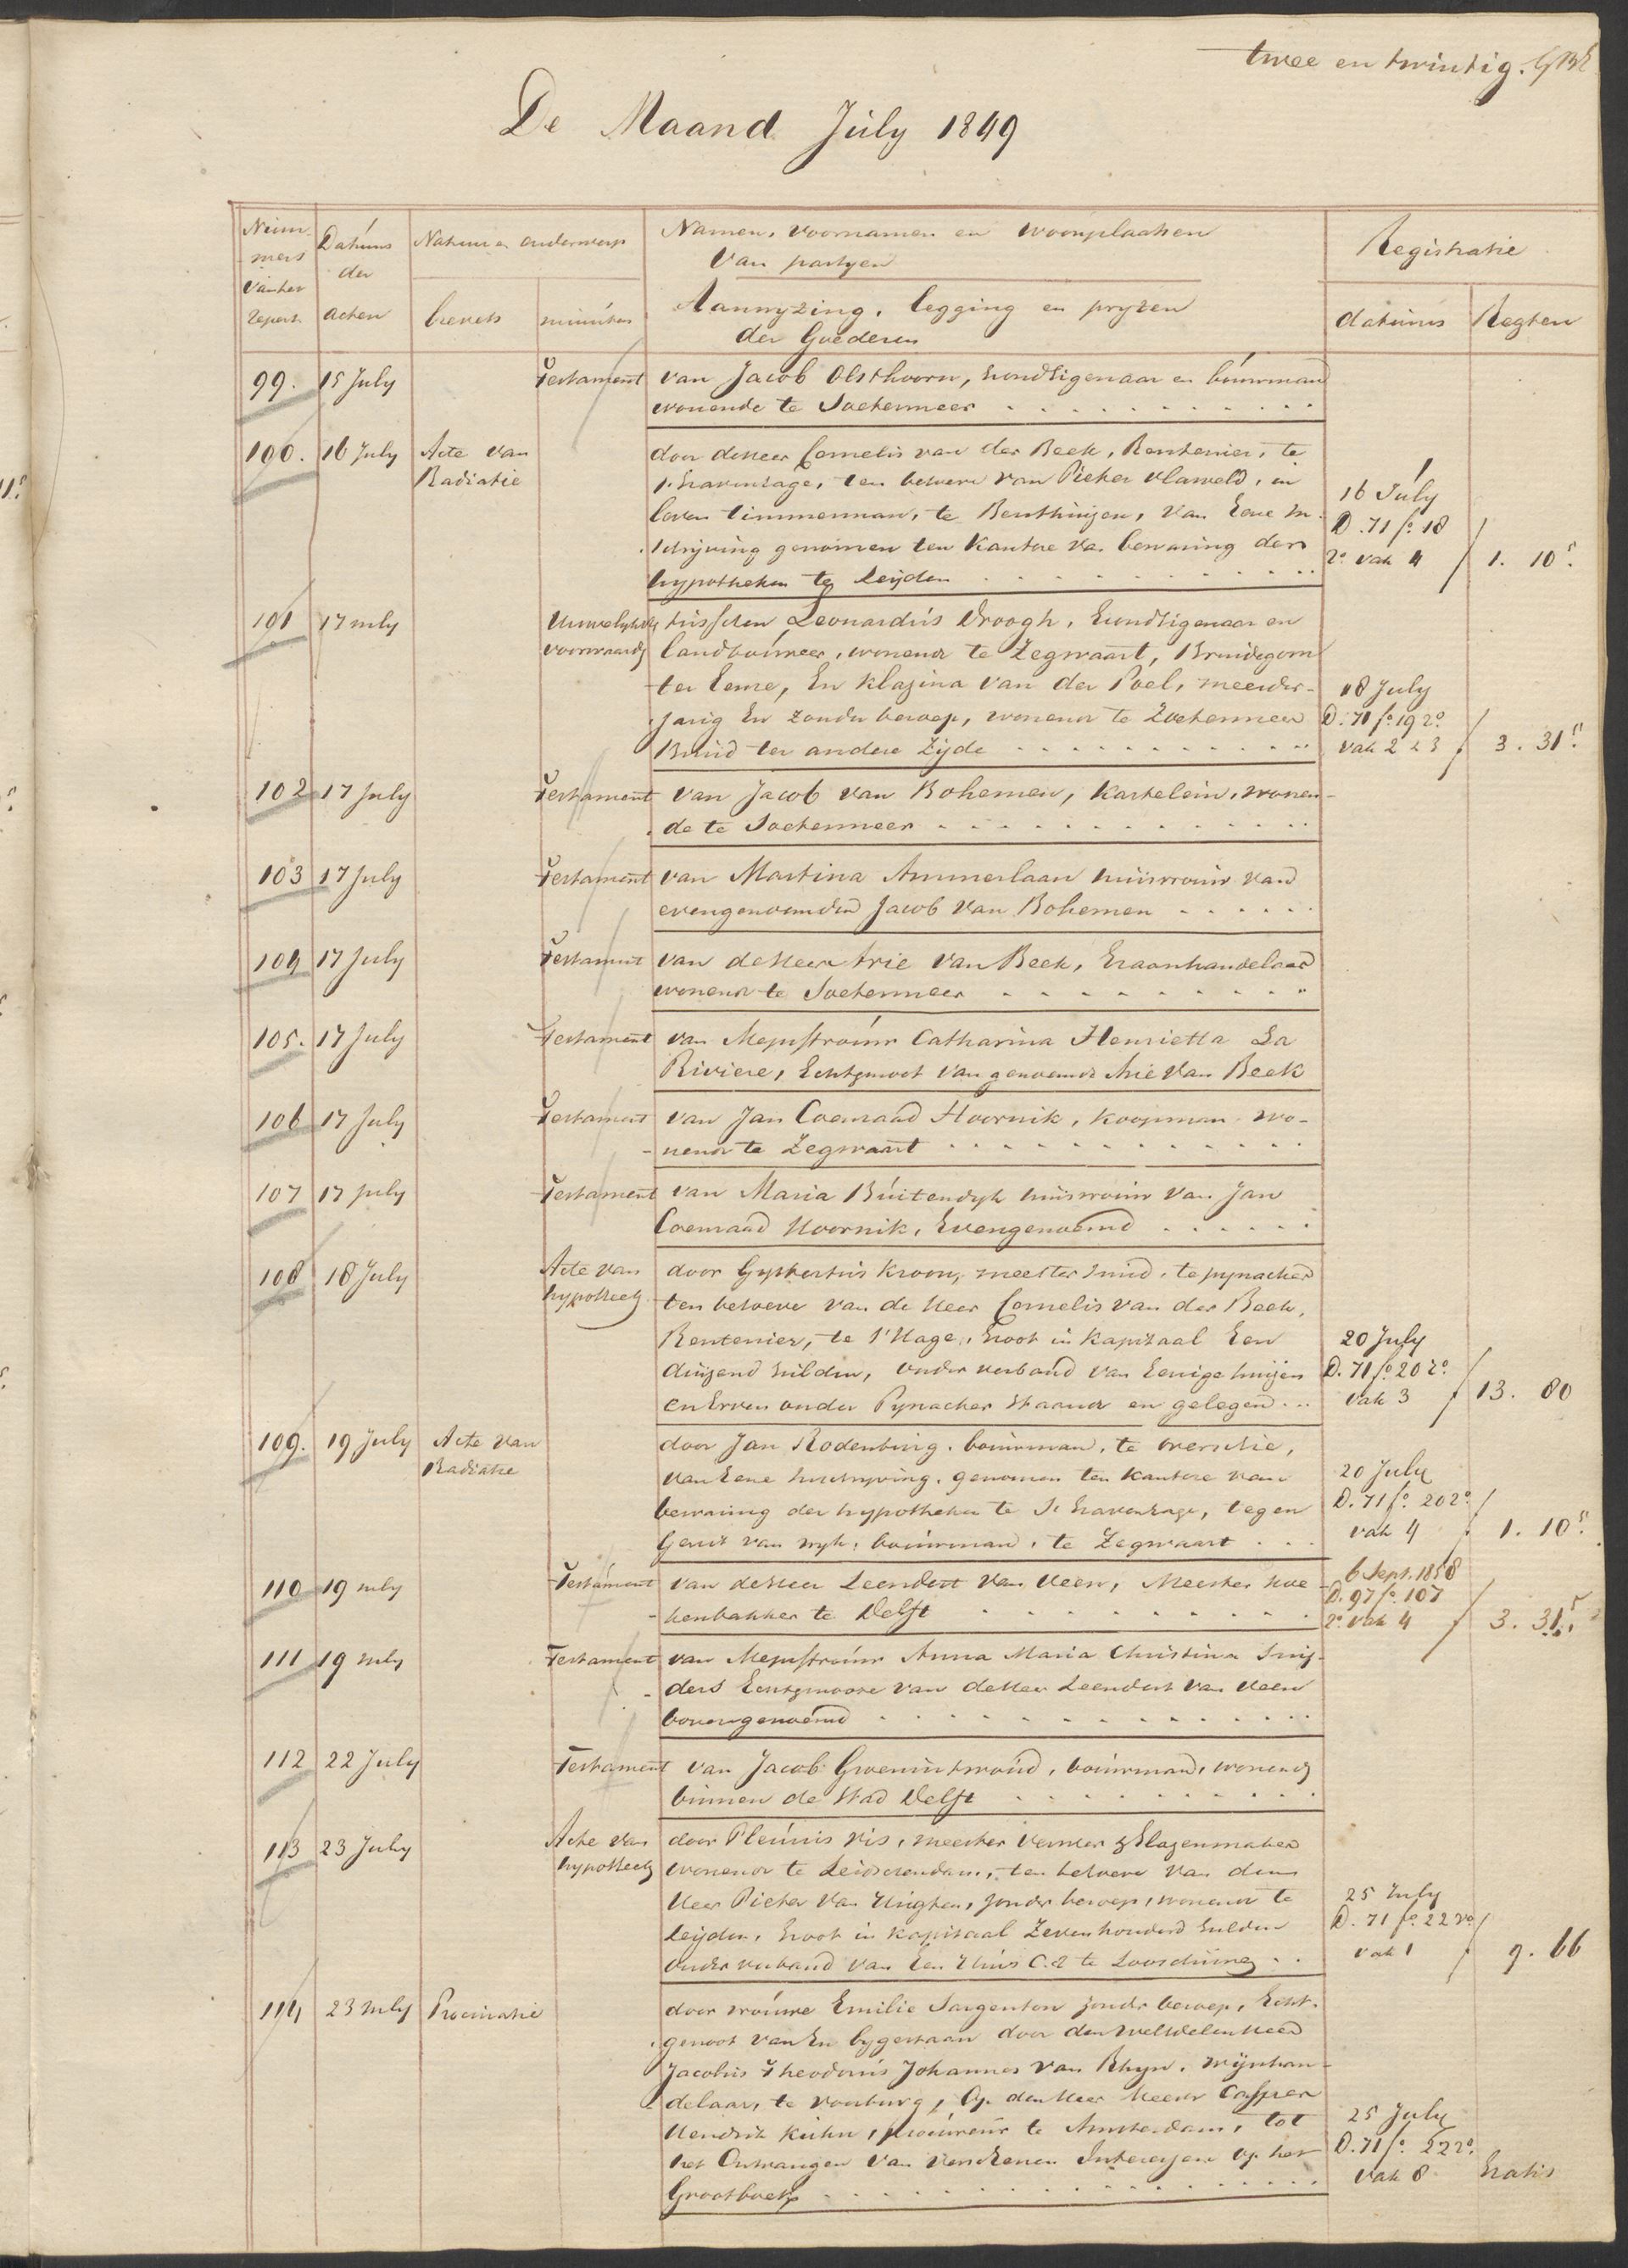 twee en twintig.
De Maand July 1849
Num-
mers
van het
Repert.
Datums
der
acten
Natuur en onderwerp
brevets
minuten
Namen, voornamen en woonplaatsen
van partyen
Aanwyzing, legging en pryzen
der Goederen
Registratie
datums
Regten
99. 15 July Testament van Jacob Olsthoorn, Grondeigenaar en bouwman
wonende te Soetermeer
100. 16 July Acte van door de Heer Cornelis van der Beek, Rentenier, te
Radiatie 's Gravenhage, ten behoeve van Pieter Vlasveld, in
leven timmerman, te Benthuizen, van Eene in- 16 July
schrijving genomen ten Kantore van bewaring der D. 71 fo. 18
hypotheken te Leijden 2o. vak 4 1. 10 5.
101 17 July Huwelyksche tusschen Leonardus Droogh, Grondeigenaar en
voorwaarde landbouwer, wonende te Zegwaart, Bruidegom
ter Eenre, En Klazina van der Poel, meerder- 18 July
jarig En zonder beroep, wonende te Zoetermeer D. 71 fo. 19 2o.
Bruid ter andere Zijde vak 2 & 3 3. 31 5.
102 17 July Testament van Jacob van Bohemen, Kastelein, wonen-
de te Soetermeer
103 17 July Testament van Martina Ammerlaan huisvrouw van
evengenoemden Jacob van Bohemen
104 17 July Testament van de Heer Arie van Beek, Graanhandelaar
wonende te Soetermeer
105. 17 July Testament van Mejuffrouw Catharina Henrietta La
Riviere, Echtgenoot van genoemde Arie van Beek
106 17 July Testament van Jan Coenraad Hoornik, Koopman wo-
nende te Zegwaart
107 17 July Testament van Maria Buitendyk huisvrouw van Jan
Coenraad Hoornik, Evengenoemd
108 18 July Acte van door Gysbertus Kroon, meester smid, te Pynacker
hypotheek ten behoeve van de Heer Cornelis van der Beek,
Rentenier, te 's Hage, Groot in Kapitaal Een 20 July
duizend Gulden, onder verband van Eenige huizen D. 71 fo. 20 2o.
en Erven onder Pynacker staande en gelegen vak 3 13. 80
109. 19 July Acte van door Jan Rodenburg, bouwman, te Overschie,
Radiatie van Eene Inschryving, genomen ten Kantore van 20 July
bewaring der hypotheken te 's Gravenhage, tegen D. 71 fo. 20 2o.
Gerrit van Wyk, bouwman, te Zegwaart vak 4 1. 10 5.
110 19 July Testament van de Heer Leendert van Veen, Meester koe- 6 Sept. 1858
kenbakker te Delft D. 97 fo. 107
2o. vak 4 3. 31 5.
111 19 July Testament van Mejuffrouw Anna Maria Christina Snij-
ders Echtgenoote van de Heer Leendert van Veen
bovengenoemd
112 22 July Testament van Jacob Groenintwoud, bouwman, wonende
binnen de Stad Delft
113 23 July Acte van door Pleunis Vis, meester Verwer & Glazenmaker
hypotheek wonende te Leidschendam, ten behoeve van den
Heer Pieter van , zonder beroep, wonende te 25 July
Leijden, Groot in Kapitaal Zevenhonderd Gulden D. 71 fo. 22 vo.
onder verband van Een Huis C.a te Loosduinen vak 1 9. 66
114 23 July Procuratie door vrouwe Emilie Sargenton zonder beroep, Echt-
genoot van En bygestaan door den WelEdelen Heer
Jacobus Theodorus Johannes van Rhyn, wijnhan-
delaar, te Voorburg, Op den Heer Casper 25 July
Hendrik Kuhn, procureur te Amsterdam, tot D. 71 fo. 22 2o.
het Ontvangen van verschenen Interessen op het vak 8 Gratis
Grootboek